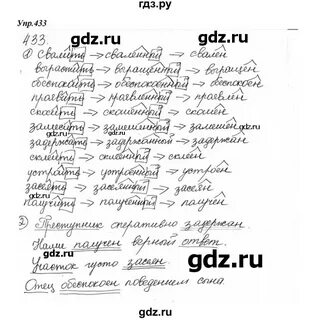 гдз.ру
Упр.433
433.
1) Свалить → сваленный → свален
вырастить → выращенный → выращен
обеспокоить → обеспокоенный → обеспокоен
проявить → проявленный → проявлен
скосить → скошенный → скошен
замесить → замешенный → замешен
задержать → задержанный → задержан
склеить → склеенный → склеен
устроить → устроенный → устроен
засеять → засеянный → засеян
получить → полученный → получен
2) Преступник оперативно задержан.
Нами получен верный ответ.
Участок густо засеян.
Отец обеспокоен поведением сына.
gdz.ru
gdz.ru
gdz.ru
gdz.ru
gdz.ru
gdz.ru
gdz.ru